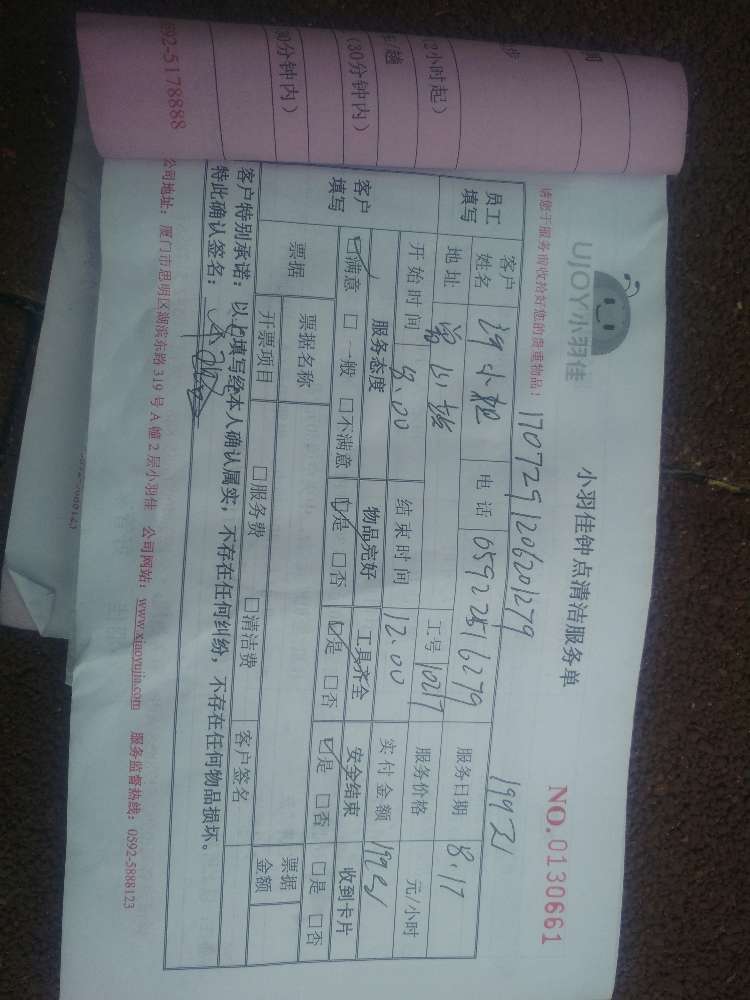 UJOY小羽佳
小羽佳钟点清洁服务单
NO.0130661
请您于服务前收拾好您的贵重物品!
1707291206201279
199.21
员工填写
客户姓名
小姐
电话
05922516279
服务日期
8.17
地址
工号
10217
服务价格
元/小时
开始时间
8.00
结束时间
12.00
实付金额
客户填写
服务态度
物品完好
工具齐全
安全结束
收到卡片
☑满意 □一般 □不满意
☑是 □否
☑是 □否
☑是 □否
□是 □否
票据
票据名称
票据金额
开票项目
□服务费 □清洁费
客户签名
客户特别承诺：以上填写经本人确认属实，不存在任何纠纷，不存在任何物品损坏。
特此确认签名：
公司地址：厦门市思明区湖滨东路319号A幢2层小羽佳 公司网站：www.xiaoyujia.com 服务监督热线：0592-5888123
2小时起)
(30分钟内)
30分钟内)
592-5178888